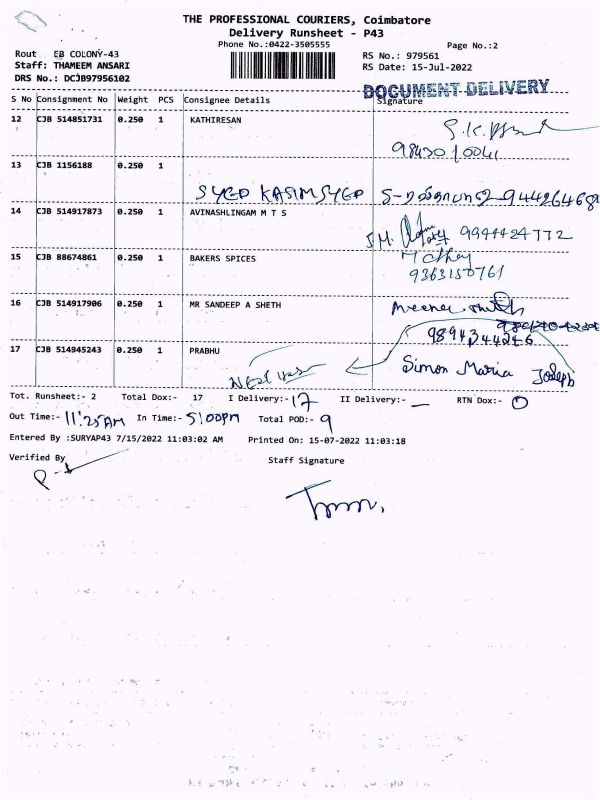 THE PROFESSIONAL COURIERS, Coimbatore
Delivery Runsheet - P43
Phone No.:0422-3505555
Page No.:2
Rout EB COLONY-43
RS No.: 979561
Staff: THAMEEM ANSARI
RS Date: 15-Jul-2022
DRS No.: DCJB97956102
DOCUMENT DELIVERY
S No Consignment No Weight PCS Consignee Details Signature
12 CJB 514851731 0.250 1 KATHIRESAN
9843010041
13 CJB 1156188 0.250 1
SYED KASIM SYED
14 CJB 514917873 0.250 1 AVINASHLINGAM M T S
9944424772
15 CJB 88674861 0.250 1 BAKERS SPICES
9363150761
16 CJB 514917906 0.250 1 MR SANDEEP A SHETH
9894344246
17 CJB 514945243 0.250 1 PRABHU
Simon Maria Joseph
Tot. Runsheet:- 2 Total Dox:- 17 I Delivery:- 17 II Delivery:- - RTN Dox:- 0
Out Time:- 11:25AM In Time:- 5:00PM Total POD:- 9
Entered By :SURYAP43 7/15/2022 11:03:02 AM Printed On: 15-07-2022 11:03:18
Verified By
Staff Signature